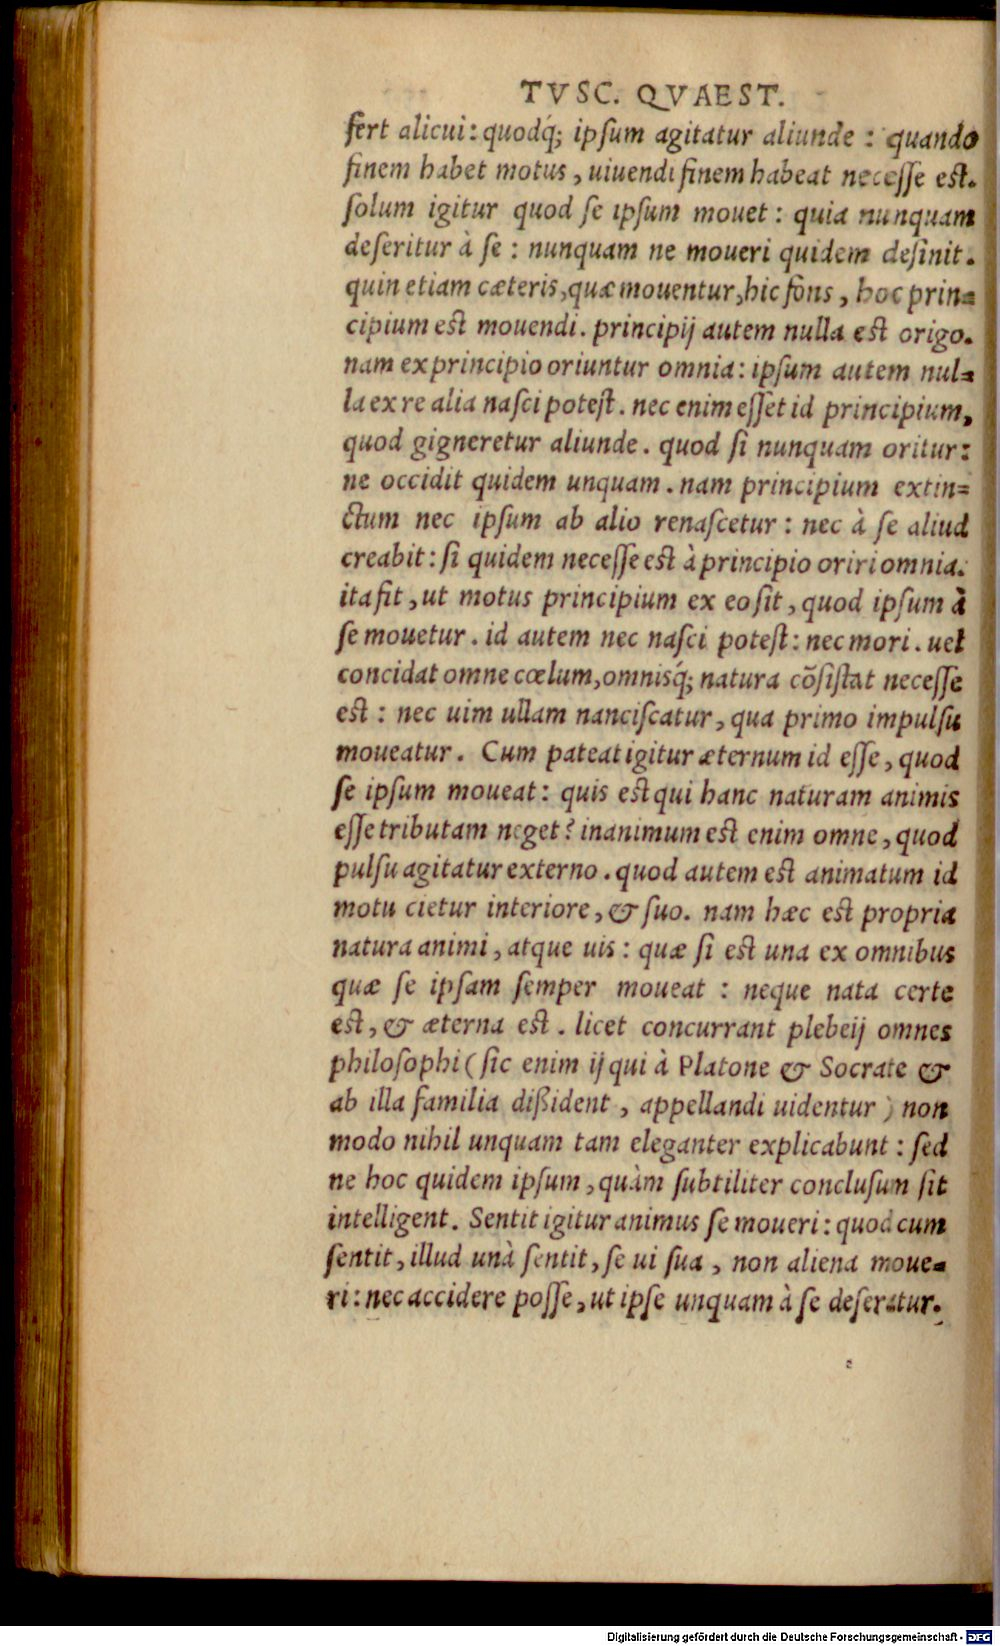 TVSC. QVAEST.
fert alicui: quodq́; ipſum agitatur aliunde : quando
finem habet motus, uiuendi finem habeat neceſſe eſt.
ſolum igitur quod ſe ipſum mouet: quia nunquam
deſeritur à ſe : nunquam ne moueri quidem deſinit.
quin etiam cæteris, quæ mouentur, hic fons, hoc prin=
cipium eſt mouendi. principij autem nulla eſt origo.
nam ex principio oriuntur omnia: ipſum autem nul=
la ex re alia naſci poteſt. nec enim eſſet id principium,
quod gigneretur aliunde. quod ſi nunquam oritur:
ne occidit quidem unquam. nam principium extin=
ctum nec ipſum ab alio renaſcetur: nec à ſe aliud
creabit: ſi quidem neceſſe eſt à principio oriri omnia.
ita fit, ut motus principium ex eo ſit, quod ipſum à
ſe mouetur. id autem nec naſci poteſt: nec mori. uel
concidat omne cœlum, omnisq́; natura cõſiſtat neceſſe
eſt: nec uim ullam nanciſcatur, qua primo impulſu
moueatur. Cum pateat igitur æternum id eſſe, quod
ſe ipſum moueat: quis eſt qui hanc naturam animis
eſſe tributam neget? inanimum eſt enim omne, quod
pulſu agitatur externo. quod autem eſt animatum id
motu cietur interiore, & ſuo. nam hæc eſt propria
natura animi, atque uis: quæ ſi eſt una ex omnibus
quæ ſe ipſam ſemper moueat : neque nata certe
eſt, & æterna eſt. licet concurrant plebeij omnes
philoſophi (ſic enim ij qui à Platone & Socrate &
ab illa familia dißident, appellandi uidentur) non
modo nihil unquam tam eleganter explicabunt: ſed
ne hoc quidem ipſum, quàm ſubtiliter concluſum ſit
intelligent. Sentit igitur animus ſe moueri: quod cum
ſentit, illud unà ſentit, ſe ui ſua, non aliena moue=
ri: nec accidere poſſe, ut ipſe unquam à ſe deſeratur.
Digitalisierung gefördert durch die Deutsche Forschungsgemeinschaft - DFG